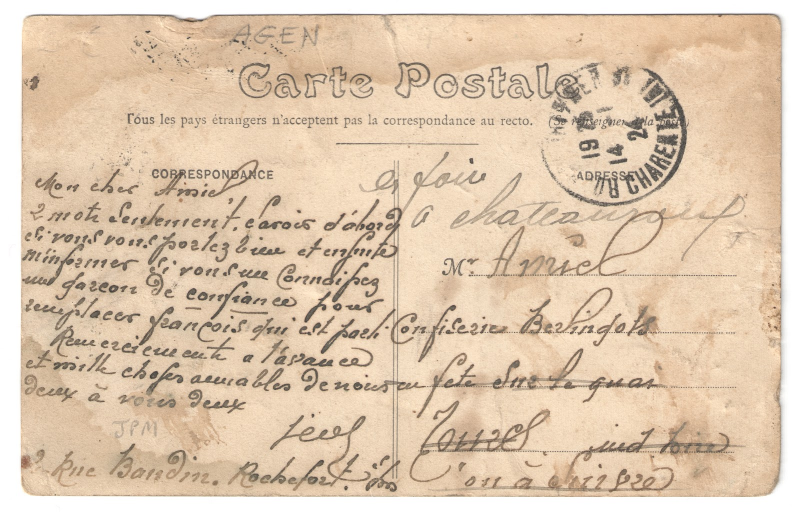 AGEN
Carte Postale
Tous les pays étrangers n'acceptent pas la correspondance au recto. (Se renseigner à la poste)
CORRESPONDANCE
Mon cher Amiel
2 mots seulement, savoir d'abord
si vous vous portez bien et ensuite
m'informer si vous me connaissez
un garçon de confiance pour
remplacer françois qui est parti
Remerciements a l'avance
et mille choses aimables de nous
deux à vous deux
JPM
Rue Baudin. Rochefort.
ROCHEFORT
19
14
24
CHARENTE INF
ADRESSE
en foire
a chateauroux
Mr. Amiel
Confiserie Berlingots
en fête sur le quai
Tours
ou à suivre